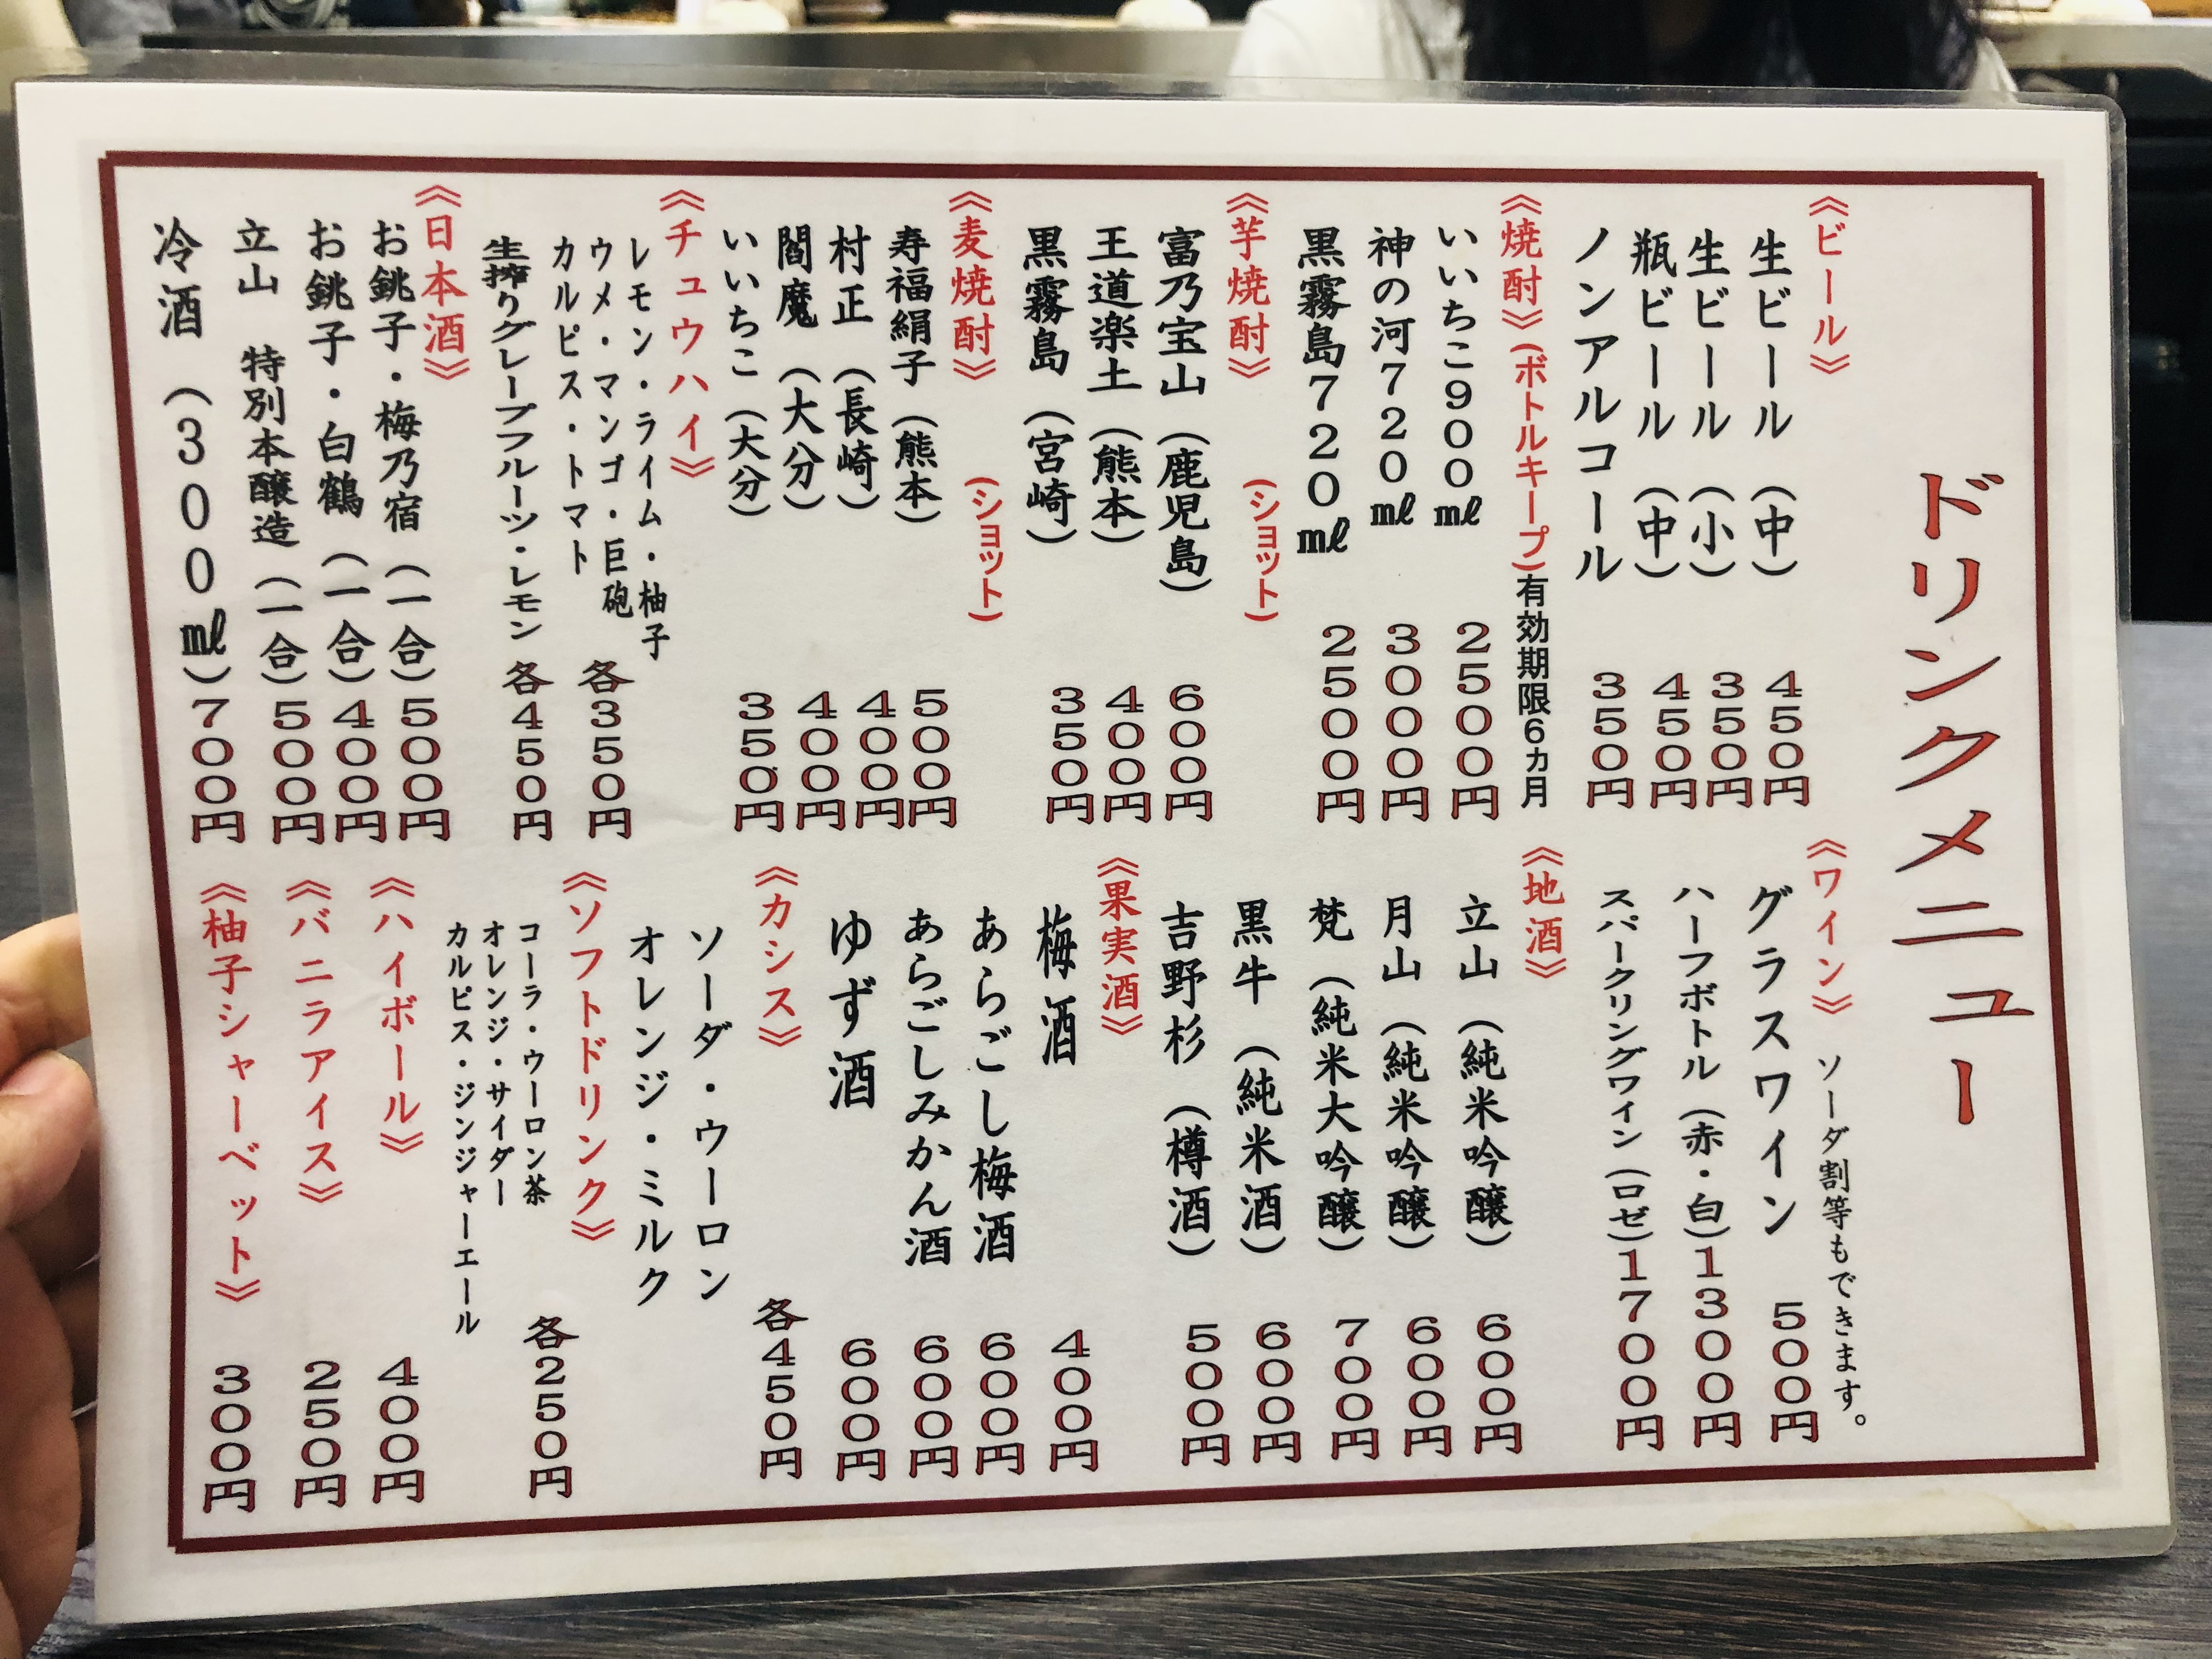 ドリンクメニュー
《ビール》
生ビール（中）450円
生ビール（小）350円
瓶ビール（中）450円
ノンアルコール 350円
《焼酎》（ボトルキープ）有効期限6カ月
いいちこ900㎖ 2500円
神の河720㎖ 3000円
黒霧島720㎖ 2500円
《芋焼酎》（ショット）
富乃宝山（鹿児島）600円
王道楽土（熊本）400円
黒霧島（宮崎）350円
《麦焼酎》（ショット）
寿福絹子（熊本）500円
村正（長崎）400円
閻魔（大分）400円
いいちこ（大分）350円
《チュウハイ》
レモン・ライム・柚子
ウメ・マンゴ・巨砲
カルピス・トマト
各350円
生搾りグレープフルーツ・レモン 各450円
《日本酒》
お銚子・梅乃宿（一合）500円
お銚子・白鶴（一合）400円
立山 特別本醸造（一合）500円
冷酒（300㎖）700円
《ワイン》ソーダ割等もできます。
グラスワイン 500円
ハーフボトル（赤・白）1300円
スパークリングワイン（ロゼ）1700円
《地酒》
立山（純米吟醸）600円
月山（純米吟醸）600円
梵（純米大吟醸）700円
黒牛（純米酒）600円
吉野杉（樽酒）500円
《果実酒》
梅酒 400円
あらごし梅酒 600円
あらごしみかん酒 600円
ゆず酒 600円
《カシス》 各450円
ソーダ・ウーロン
オレンジ・ミルク
《ソフトドリンク》
各250円
コーラ・ウーロン茶
オレンジ・サイダー
カルピス・ジンジャーエール
《ハイボール》 400円
《バニラアイス》 250円
《柚子シャーベット》 300円